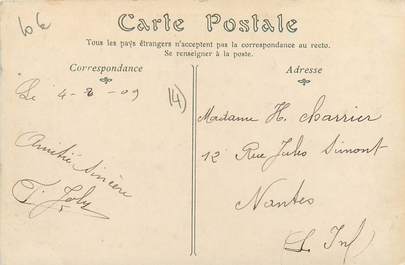 10€
Carte Postale
Tous les pays étrangers n'acceptent pas la correspondance au recto.
Se renseigner à la poste.
Correspondance
Adresse
Le 4-8-09
14
Amitié Sincère
Joly
Madame H. Charrier
12 Rue Jules Simont
Nantes
L. Inf)